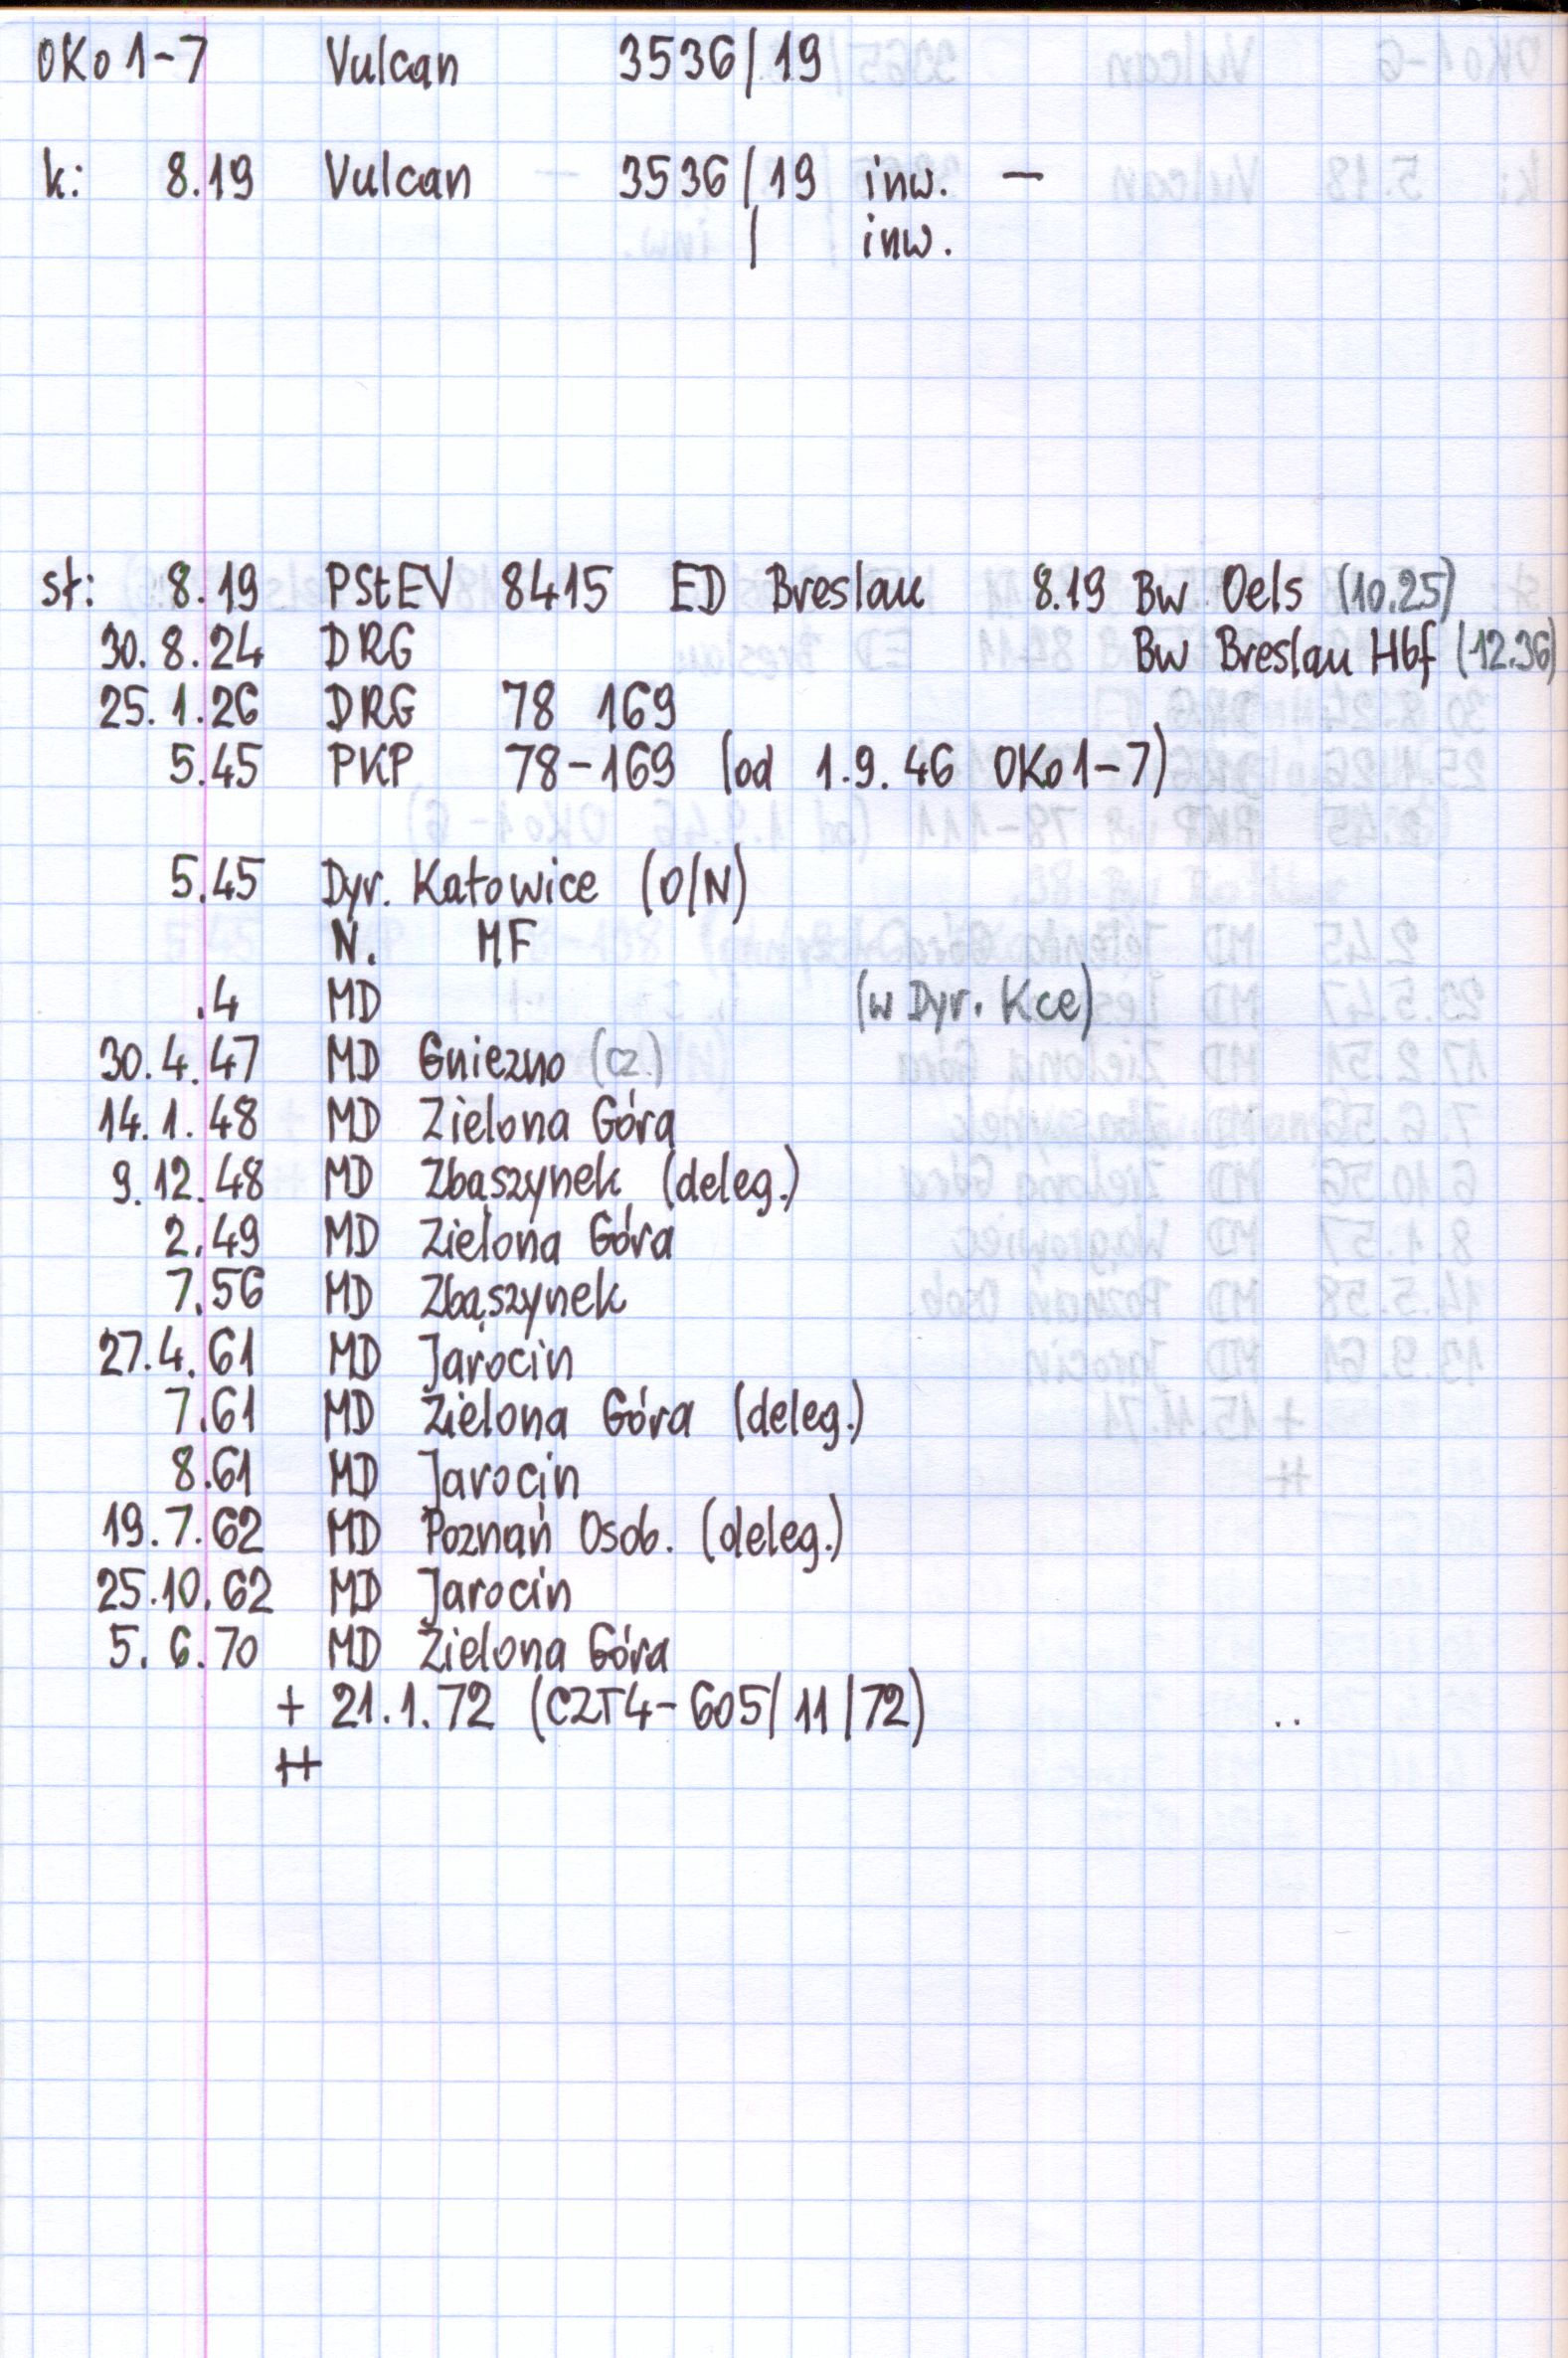 OKo1-7 Vulcan 3536/19
k: 8.19 Vulcan 3536/19 inw. —
/ inw.
st: 8.19 PStEV 8415 ED Breslau 8.19 Bw Oels (10.25)
30.8.24 DRG Bw Breslau Hbf (12.36)
25.1.26 DRG 78 169
5.45 PKP 78-169 (od 1.9.46 OKo1-7)
5.45 Dyr. Katowice (O/N)
N. MF
.4 MD (w Dyr. Kce)
30.4.47 MD Gniezno (cz.)
14.1.48 MD Zielona Góra
9.12.48 MD Zbąszynek (deleg.)
2.49 MD Zielona Góra
7.56 MD Zbąszynek
27.4.61 MD Jarocin
7.61 MD Zielona Góra (deleg.)
8.61 MD Jarocin
19.7.62 MD Poznań Osob. (deleg.)
25.10.62 MD Jarocin
5.6.70 MD Zielona Góra
+ 21.1.72 (CZT4-605/11/72) ..
++